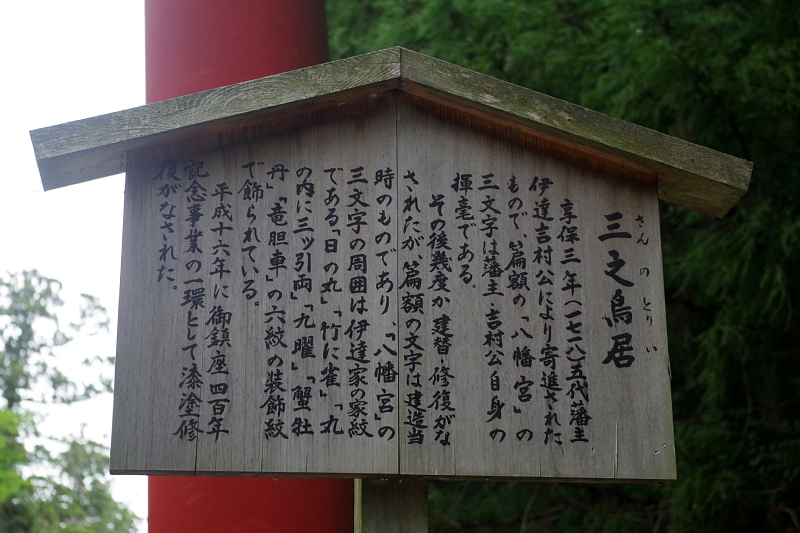 さんのとりい
三之鳥居
享保三年(一七一八)五代藩主
伊達吉村公により寄進された
もので、篇額の「八幡宮」の
三文字は藩主・吉村公自身の
揮毫である。
その後幾度か建替・修復がな
されたが、篇額の文字は建造当
時のものであり、「八幡宮」の
三文字の周囲は伊達家の家紋
である「日の丸」「竹に雀」「丸
の内に三ッ引両」「九曜」「蟹牡
丹」「竜胆車」の六紋の装飾紋
で飾られている。
平成十六年に御鎮座四百年
記念事業の一環として漆塗修
復がなされた。